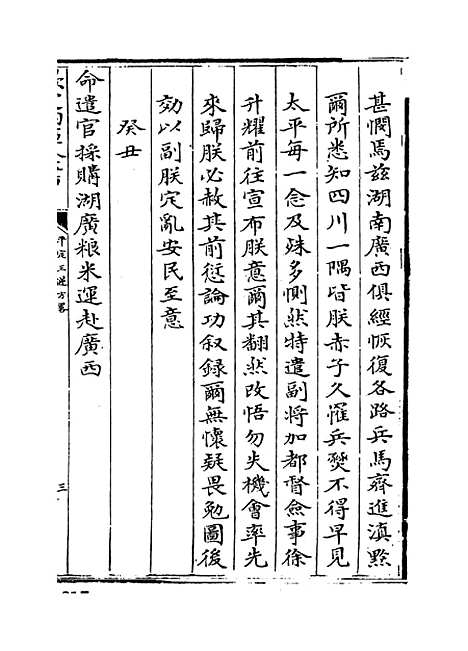 甚憫焉茲湖南廣西俱經恢復各路兵馬齊進滇黔
爾所悉知四川一隅皆朕赤子久罹兵燹不得早見
太平每一念及殊多惻然特遣副將加都督僉事徐
升耀前往宣布朕意爾其翻然改悟勿失機會率先
來歸朕必赦其前愆論功叙録爾無懷疑畏勉圖後
効以副朕定亂安民至意
癸丑
命遣官採購湖廣粮米運赴廣西
平定三逆方略
三